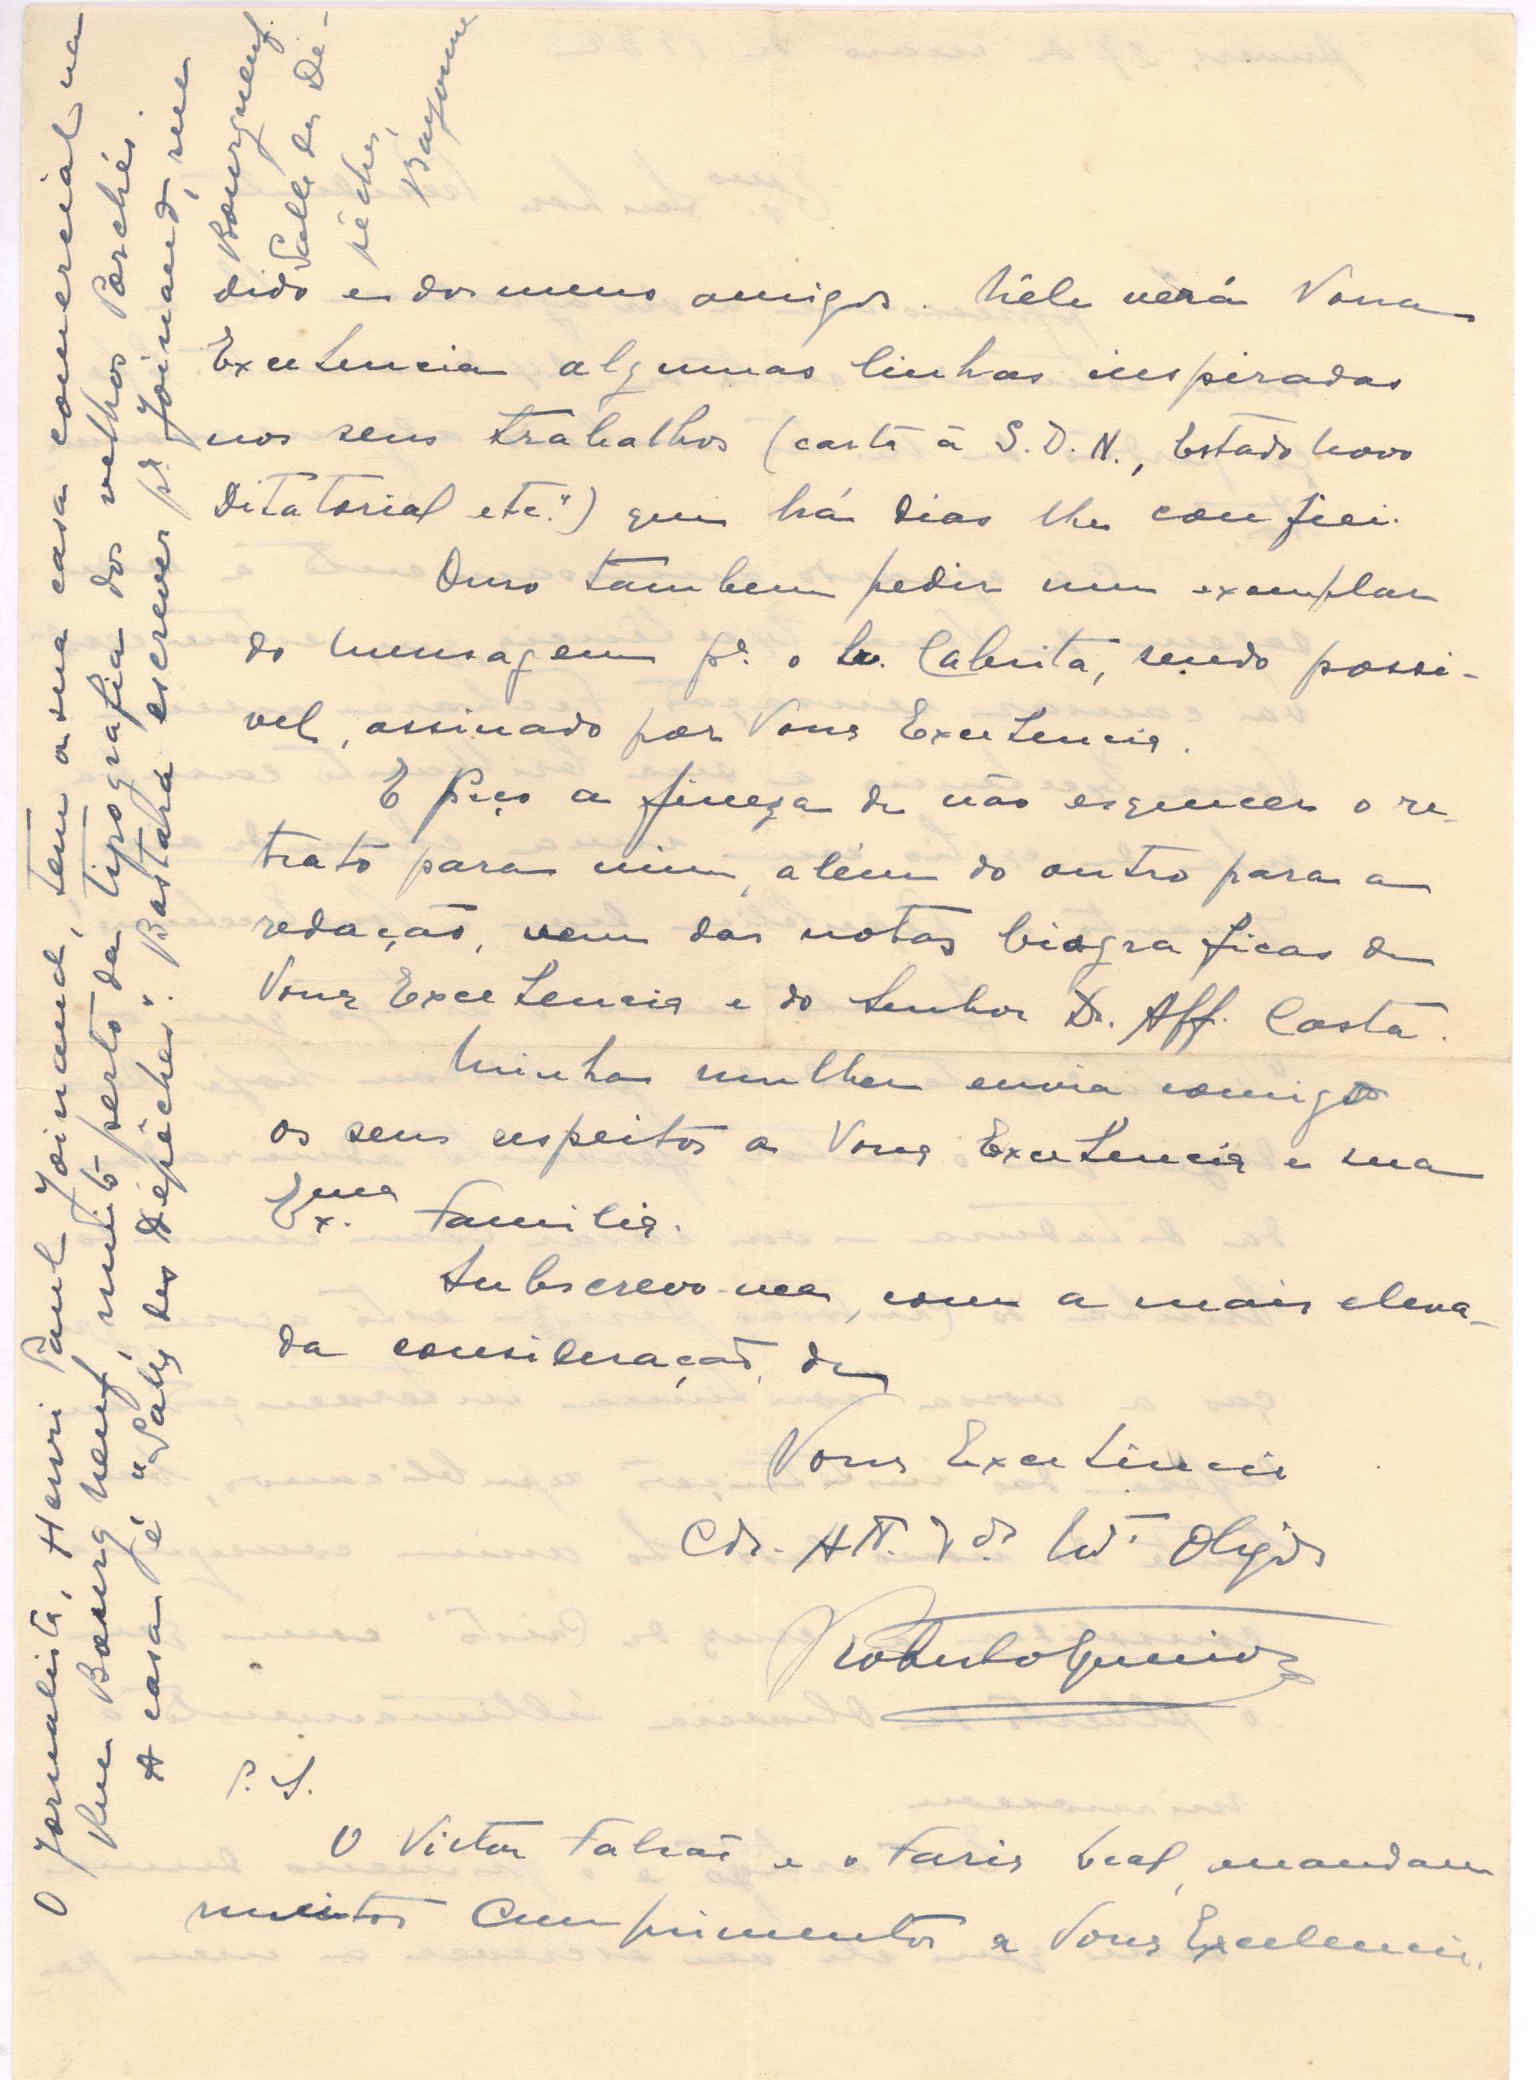 dido e dos meus amigos. Nêle verá Vossa
Excelencia algumas linhas inspiradas
nos seus trabalhos (carta á S. D. N., Estado Novo
Ditatorial etc.ª) que há dias lhe confiei.
Ouso tambem pedir um exemplar
do mensagem pª. o Sr. Cabrita, sendo possi-
vel, assinado por Vossa Excelencia.
E Peço a fineza de não esquecer o re-
trato para mim, além do outro para a
redação, nem das notas biograficas de
Vossa Excelencia e do Senhor Dr. Aff. Costa.
Minha mulher envia comigo
os seus respeitos a Vossa Excelencia e sua
Exma. Familia.
Subscrevo-me, com a mais eleva-
da consideração, de
Vossa Excelencia
Cdº. Att. Mt. Obgdº
P. S.
O Victor Falcão e o Faria Leal, mandam
muitos cumprimentos a Vossa Excelencia.
O jornalista, Henri Paul Joinaud, tem a sua casa comercial na
Rue Bourgneuf, muito perto da tipografia dos velhos Porchés.
A casa é "Salle des Dépêches". Bastará escrever pª. Joinaud, rue
Bourgneuf.
Salle des Dé-
pêches,
Bayonne